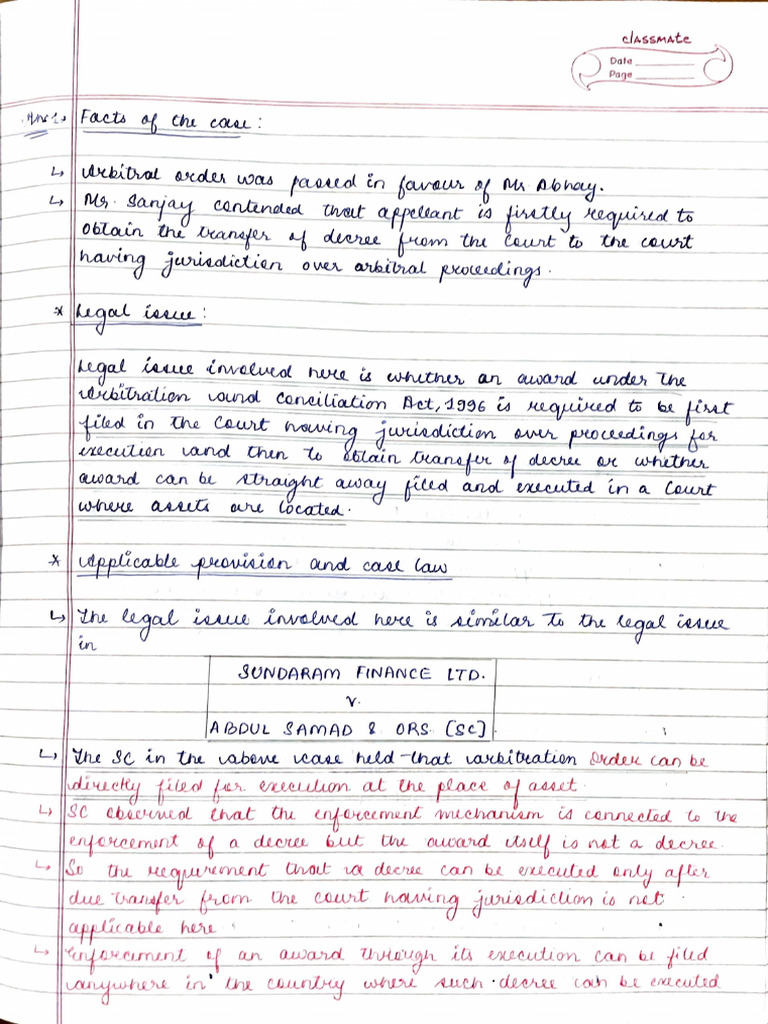 classmate
Date
Page
Ans 1. Facts of the case:
↳ Arbitral order was passed in favour of Mr. Abhay.
↳ Mr. Sanjay contended that appellant is firstly required to
obtain the transfer of decree from the court to the court
having jurisdiction over arbitral proceedings.
* Legal issue:
Legal issue involved here is whether an award under the
Arbitration and Conciliation Act, 1996 is required to be first
filed in the court having jurisdiction over proceedings for
execution and then to obtain transfer of decree or whether
award can be straight away filed and executed in a Court
where assets are located.
* Applicable provision and case law
↳ The legal issue involved here is similar to the legal issue
in
SUNDARAM FINANCE LTD.
v.
ABDUL SAMAD & ORS. [SC]
↳ The SC in the above case held that arbitration order can be
directly filed for execution at the place of asset.
↳ SC observed that the enforcement mechanism is connected to the
enforcement of a decree but the award itself is not a decree.
↳ So the requirement that a decree can be executed only after
due transfer from the court having jurisdiction is not
applicable here
↳ Enforcement of an award through its execution can be filed
anywhere in the country where such decree can be executed